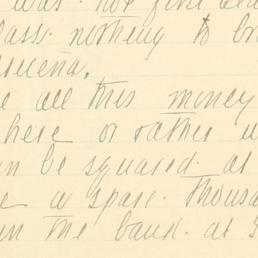 was. not first
lass. nothing to
all this money
here or rather
n be squared. at
a spare. thousa
in the bank. at